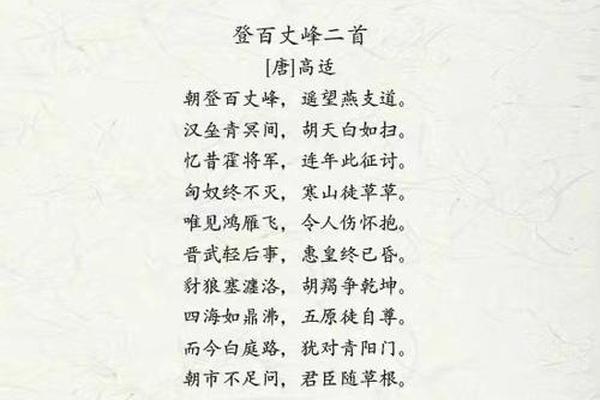 登百丈峰二首
[唐]高适
朝登百丈峰，遥望燕支道。
汉垒青冥间，胡天白如扫。
忆昔霍将军，连年此征讨。
匈奴终不灭，寒山徒草草。
唯见鸿雁飞，令人伤怀抱。
晋武轻后事，惠皇终已昏。
豺狼塞瀍洛，胡羯争乾坤。
四海如鼎沸，五原徒自尊。
而今白庭路，犹对青阳门。
朝市不足问，君臣随草根。